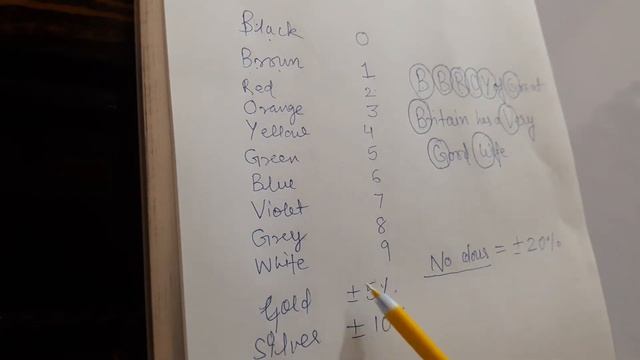 Black 0
Brown 1
Red 2
Orange 3
Yellow 4
Green 5
Blue 6
Violet 7
Grey 8
White 9
Gold ±5%.
Silver ±10
B B R O Y of Great
Britain has a Very
Good Wife
No colour = ±20%